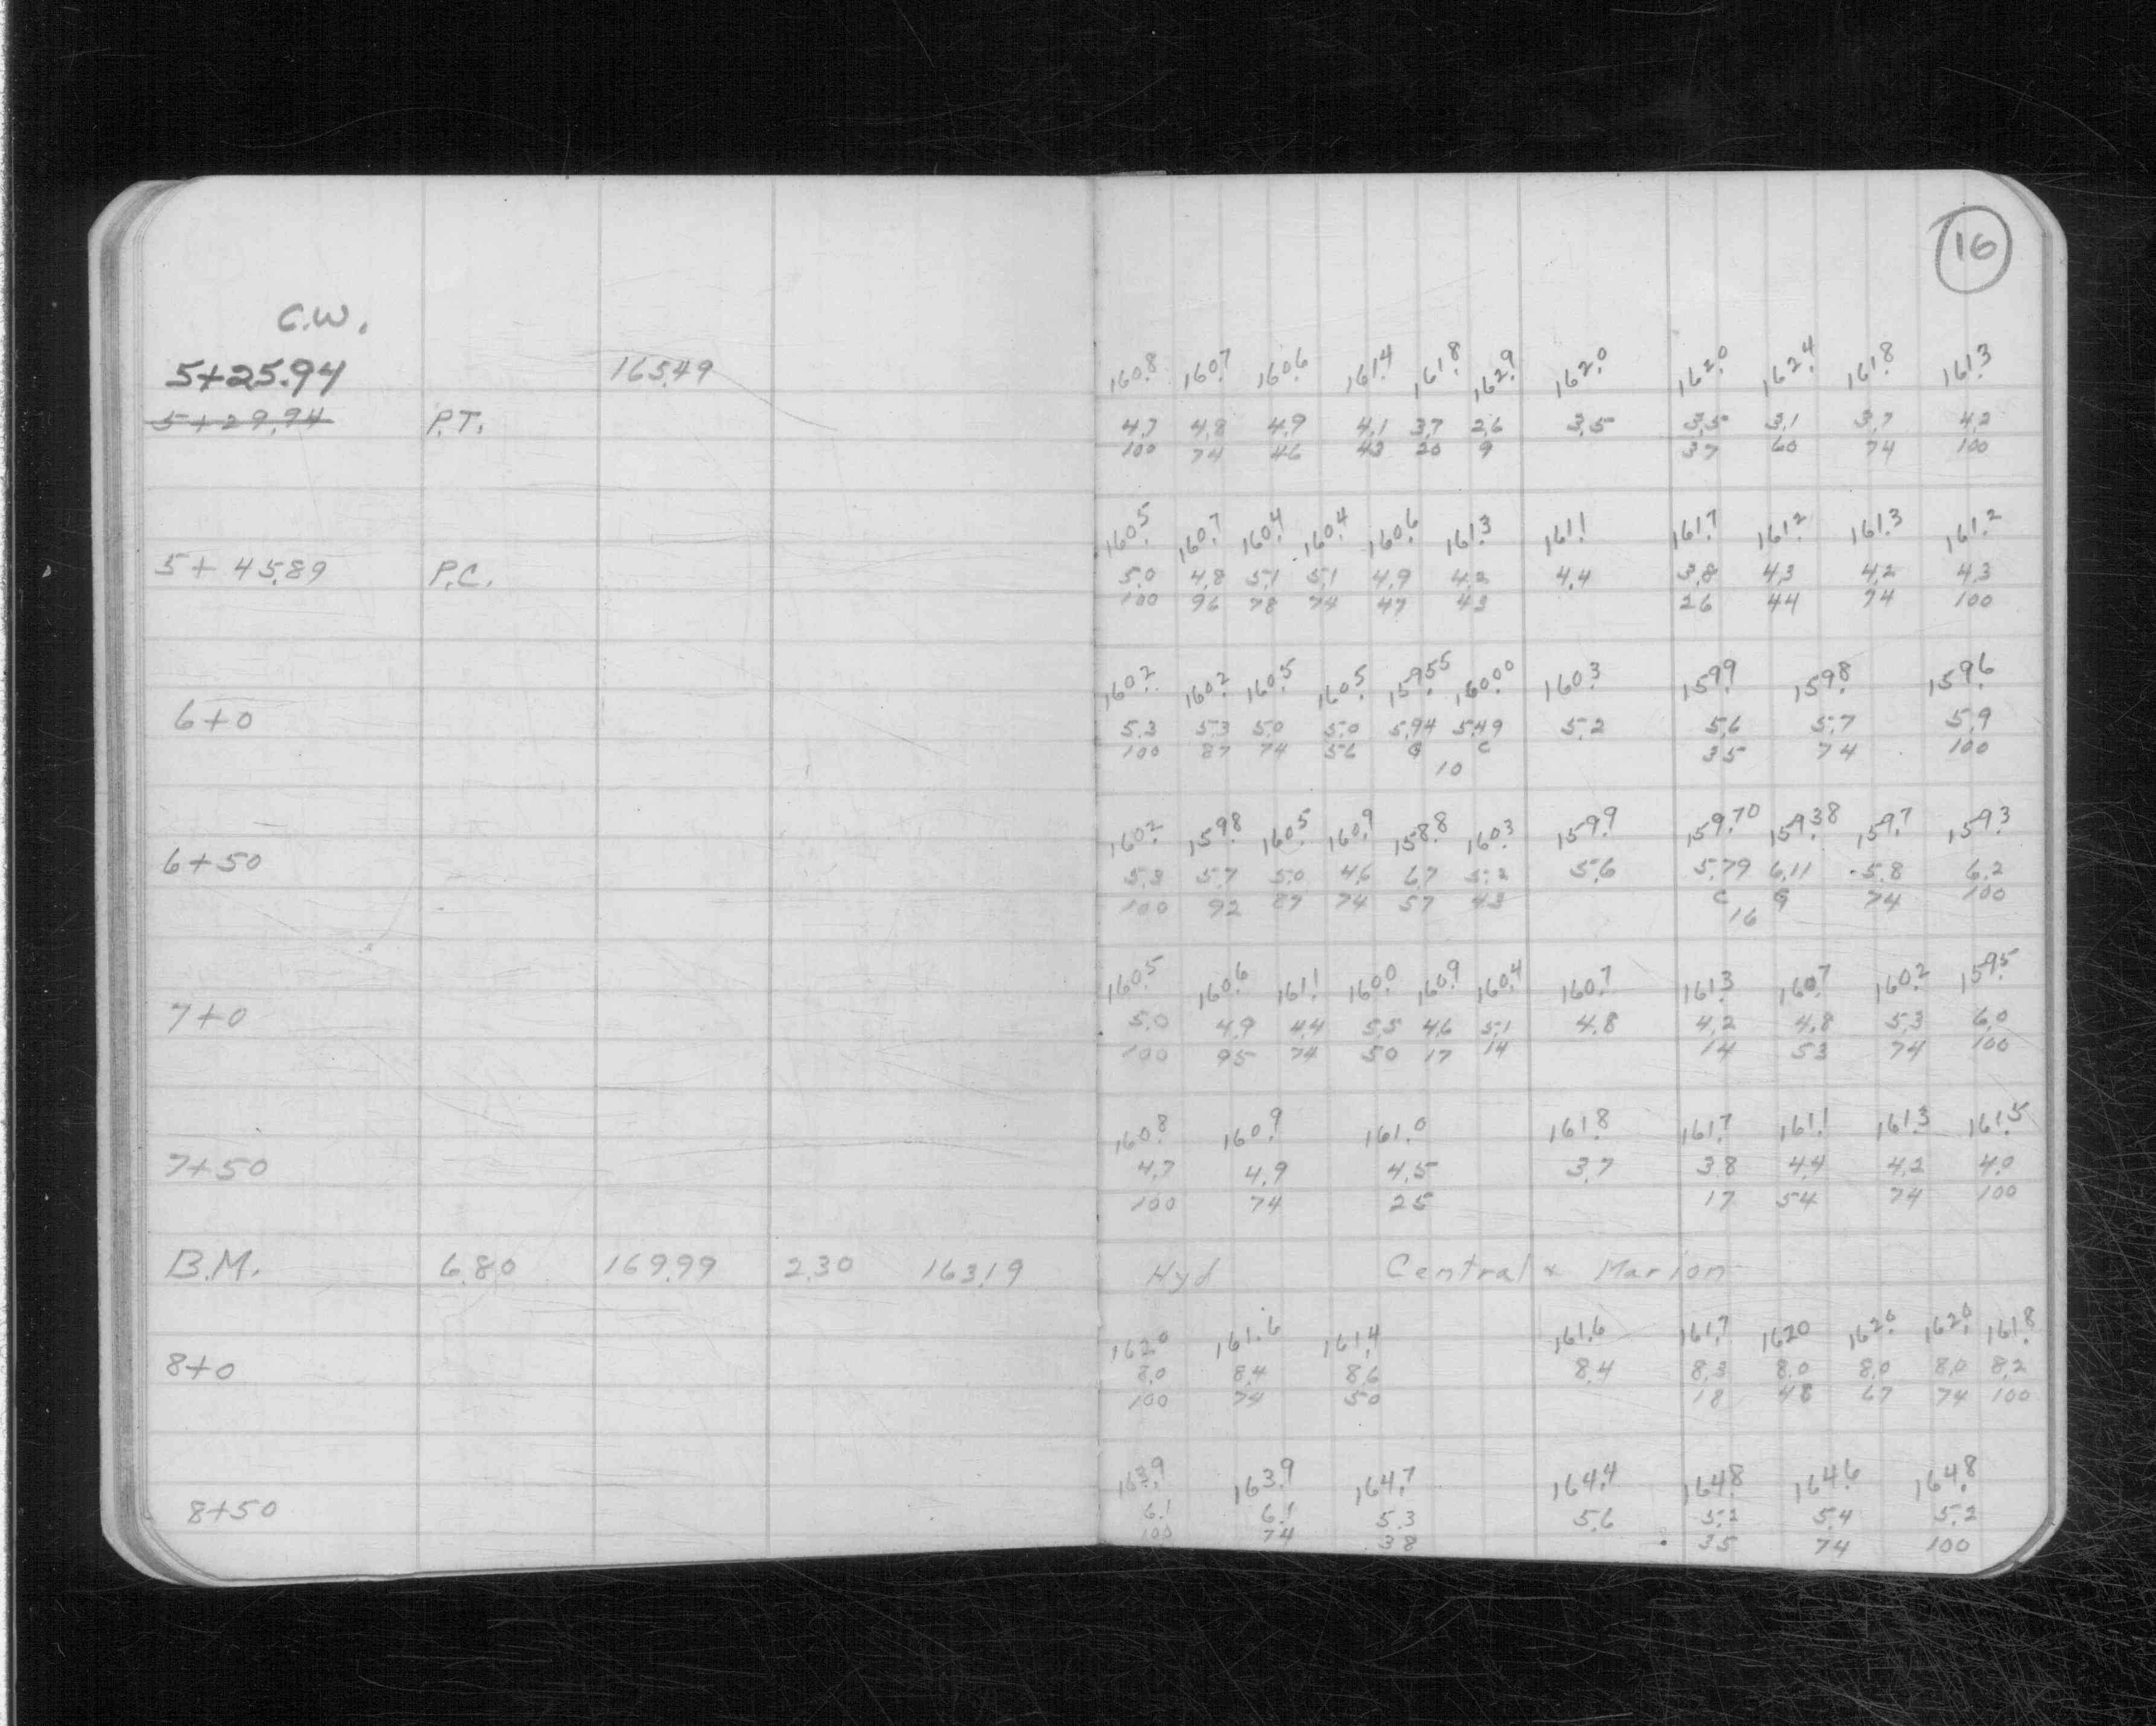 16
C.W.
5+25.94 165.49 160.8 160.7 160.6 161.4 161.8 162.9 162.0 162.0 162.4 161.8 161.3
5+29.94 P.T. 4.7 4.8 4.9 4.1 3.7 2.6 3.5 3.5 3.1 3.7 4.2
100 74 46 43 20 9 37 60 74 100
160.5 160.7 160.4 160.4 160.6 161.3 161.1 161.7 161.2 161.3 161.2
5+45.89 P.C. 5.0 4.8 5.1 5.1 4.9 4.2 4.4 3.8 4.3 4.2 4.3
100 96 78 74 47 43 26 44 74 100
160.2 160.2 160.5 160.5 159.55 160.00 160.3 159.9 159.8 159.6
6+0 5.3 5.3 5.0 5.0 5.94 5.49 5.2 5.6 5.7 5.9
100 87 74 56 G C 35 74 100
10
160.2 159.8 160.5 160.9 158.8 160.3 159.9 159.70 159.38 159.7 159.3
6+50 5.3 5.7 5.0 4.6 6.7 5.2 5.6 5.79 6.11 5.8 6.2
100 92 87 74 57 43 C G 74 100
16
160.5 160.6 161.1 160.0 160.9 160.4 160.7 161.3 160.7 160.2 159.5
7+0 5.0 4.9 4.4 5.5 4.6 5.1 4.8 4.2 4.8 5.3 6.0
100 95 74 50 17 14 14 53 74 100
160.8 160.9 161.0 161.8 161.7 161.1 161.3 161.5
7+50 4.7 4.9 4.5 3.7 3.8 4.4 4.2 4.0
100 74 25 17 54 74 100
B.M. 6.80 169.99 2.30 163.19 Hyd Central & Marion
162.0 161.6 161.4 161.6 161.7 162.0 162.0 162.0 161.8
8+0 8.0 8.4 8.6 8.4 8.3 8.0 8.0 8.0 8.2
100 74 50 18 48 67 74 100
163.9 163.9 164.7 164.4 164.8 164.6 164.8
8+50 6.1 6.1 5.3 5.6 5.2 5.4 5.2
100 74 38 35 74 100